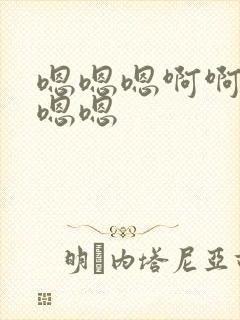 嗯嗯嗯啊啊
嗯嗯
明内塔尼亚